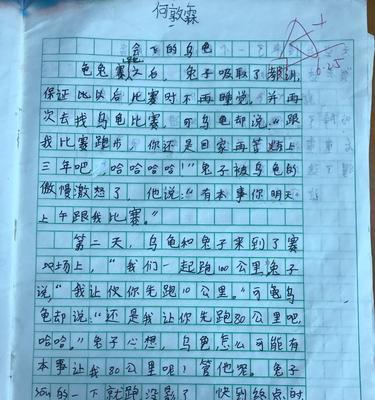 何敦霖
A+
6.25
会飞的乌龟
龟兔赛跑之后，兔子吸取了教训，
保证比以后比赛时不再睡觉，并再
次去找乌龟比赛，可乌龟却说：“跟
我比赛跑步，你还是回家再苦练上
三年吧，哈哈哈哈！”兔子被乌龟的
傲慢激怒了，他说：“有本事你明天
上午跟我比赛。”
第二天，乌龟和兔子来到了赛
场上，“我们一起跑100公里，兔子
说，“我让你先跑10公里。”可乌
龟却说：“还是我让你先跑80公里吧，
哈哈。”兔子心想，乌龟怎么可能有
本事让我80公里呢！管他呢。兔子
的一下就跑没影了，快到终点时